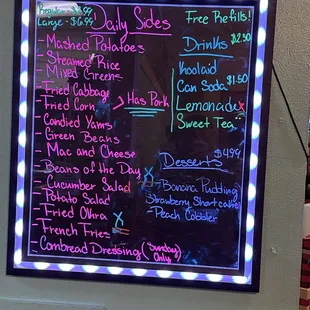 Large - $6.99
Daily Sides
- Mashed Potatoes
- Steamed Rice
- Mixed Greens
- Fried Cabbage
- Fried Corn
> Has Pork
- Candied Yams
- Green Beans
- Mac and Cheese
- Beans of the Day
- Cucumber Salad
- Potato Salad
- Fried Okra
- French Fries
- Cornbread Dressing (Sunday Only)
Free Refills!
Drinks $2.50
Koolaid
Can Soda $1.50
Lemonade
Sweet Tea
Desserts $4.99
- Banana Pudding
Strawberry Shortcake
- Peach Cobbler